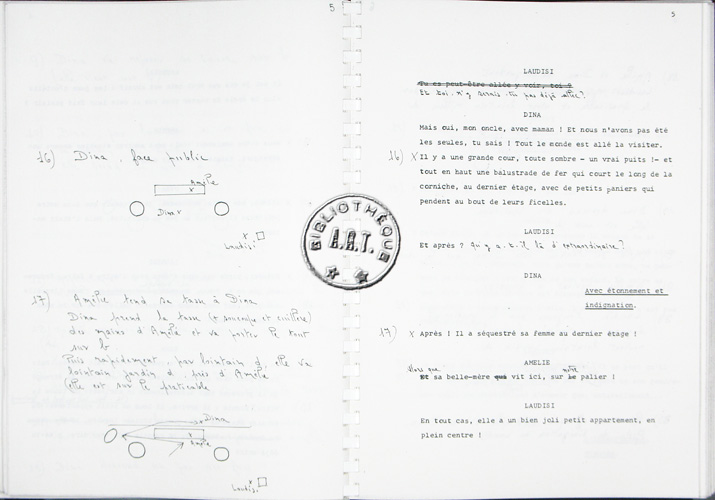 5
16) Dina, face public
Amélie
x
Dina x
x
Laudisi
17) Amélie tend sa tasse à Dina
Dina prend la tasse (+ soucoupe et cuillère)
des mains d'Amélie et va porter le tout
sur le
Puis rapidement, par lointain d, elle va
lointain jardin d, près d'Amélie
(elle est sur le praticable
Dina
x
Amélie
x
Laudisi
BIBLIOTHÈQUE
A.R.T.
5
LAUDISI
Tu es peut-être allée y voir, toi ?
Et toi, n'y serais-tu pas déjà allée ?
DINA
Mais oui, mon oncle, avec maman ! Et nous n'avons pas été
les seules, tu sais ! Tout le monde est allé la visiter.
16) X Il y a une grande cour, toute sombre - un vrai puits !- et
tout en haut une balustrade de fer qui court le long de la
corniche, au dernier étage, avec de petits paniers qui
pendent au bout de leurs ficelles.
LAUDISI
Et après ? Qu'y a-t-il là d'extraordinaire ?
DINA
Avec étonnement et
indignation.
17) X Après ! Il a séquestré sa femme au dernier étage !
AMELIE
Alors que notre
Et sa belle-mère qui vit ici, sur le palier !
LAUDISI
En tout cas, elle a un bien joli petit appartement, en
plein centre !